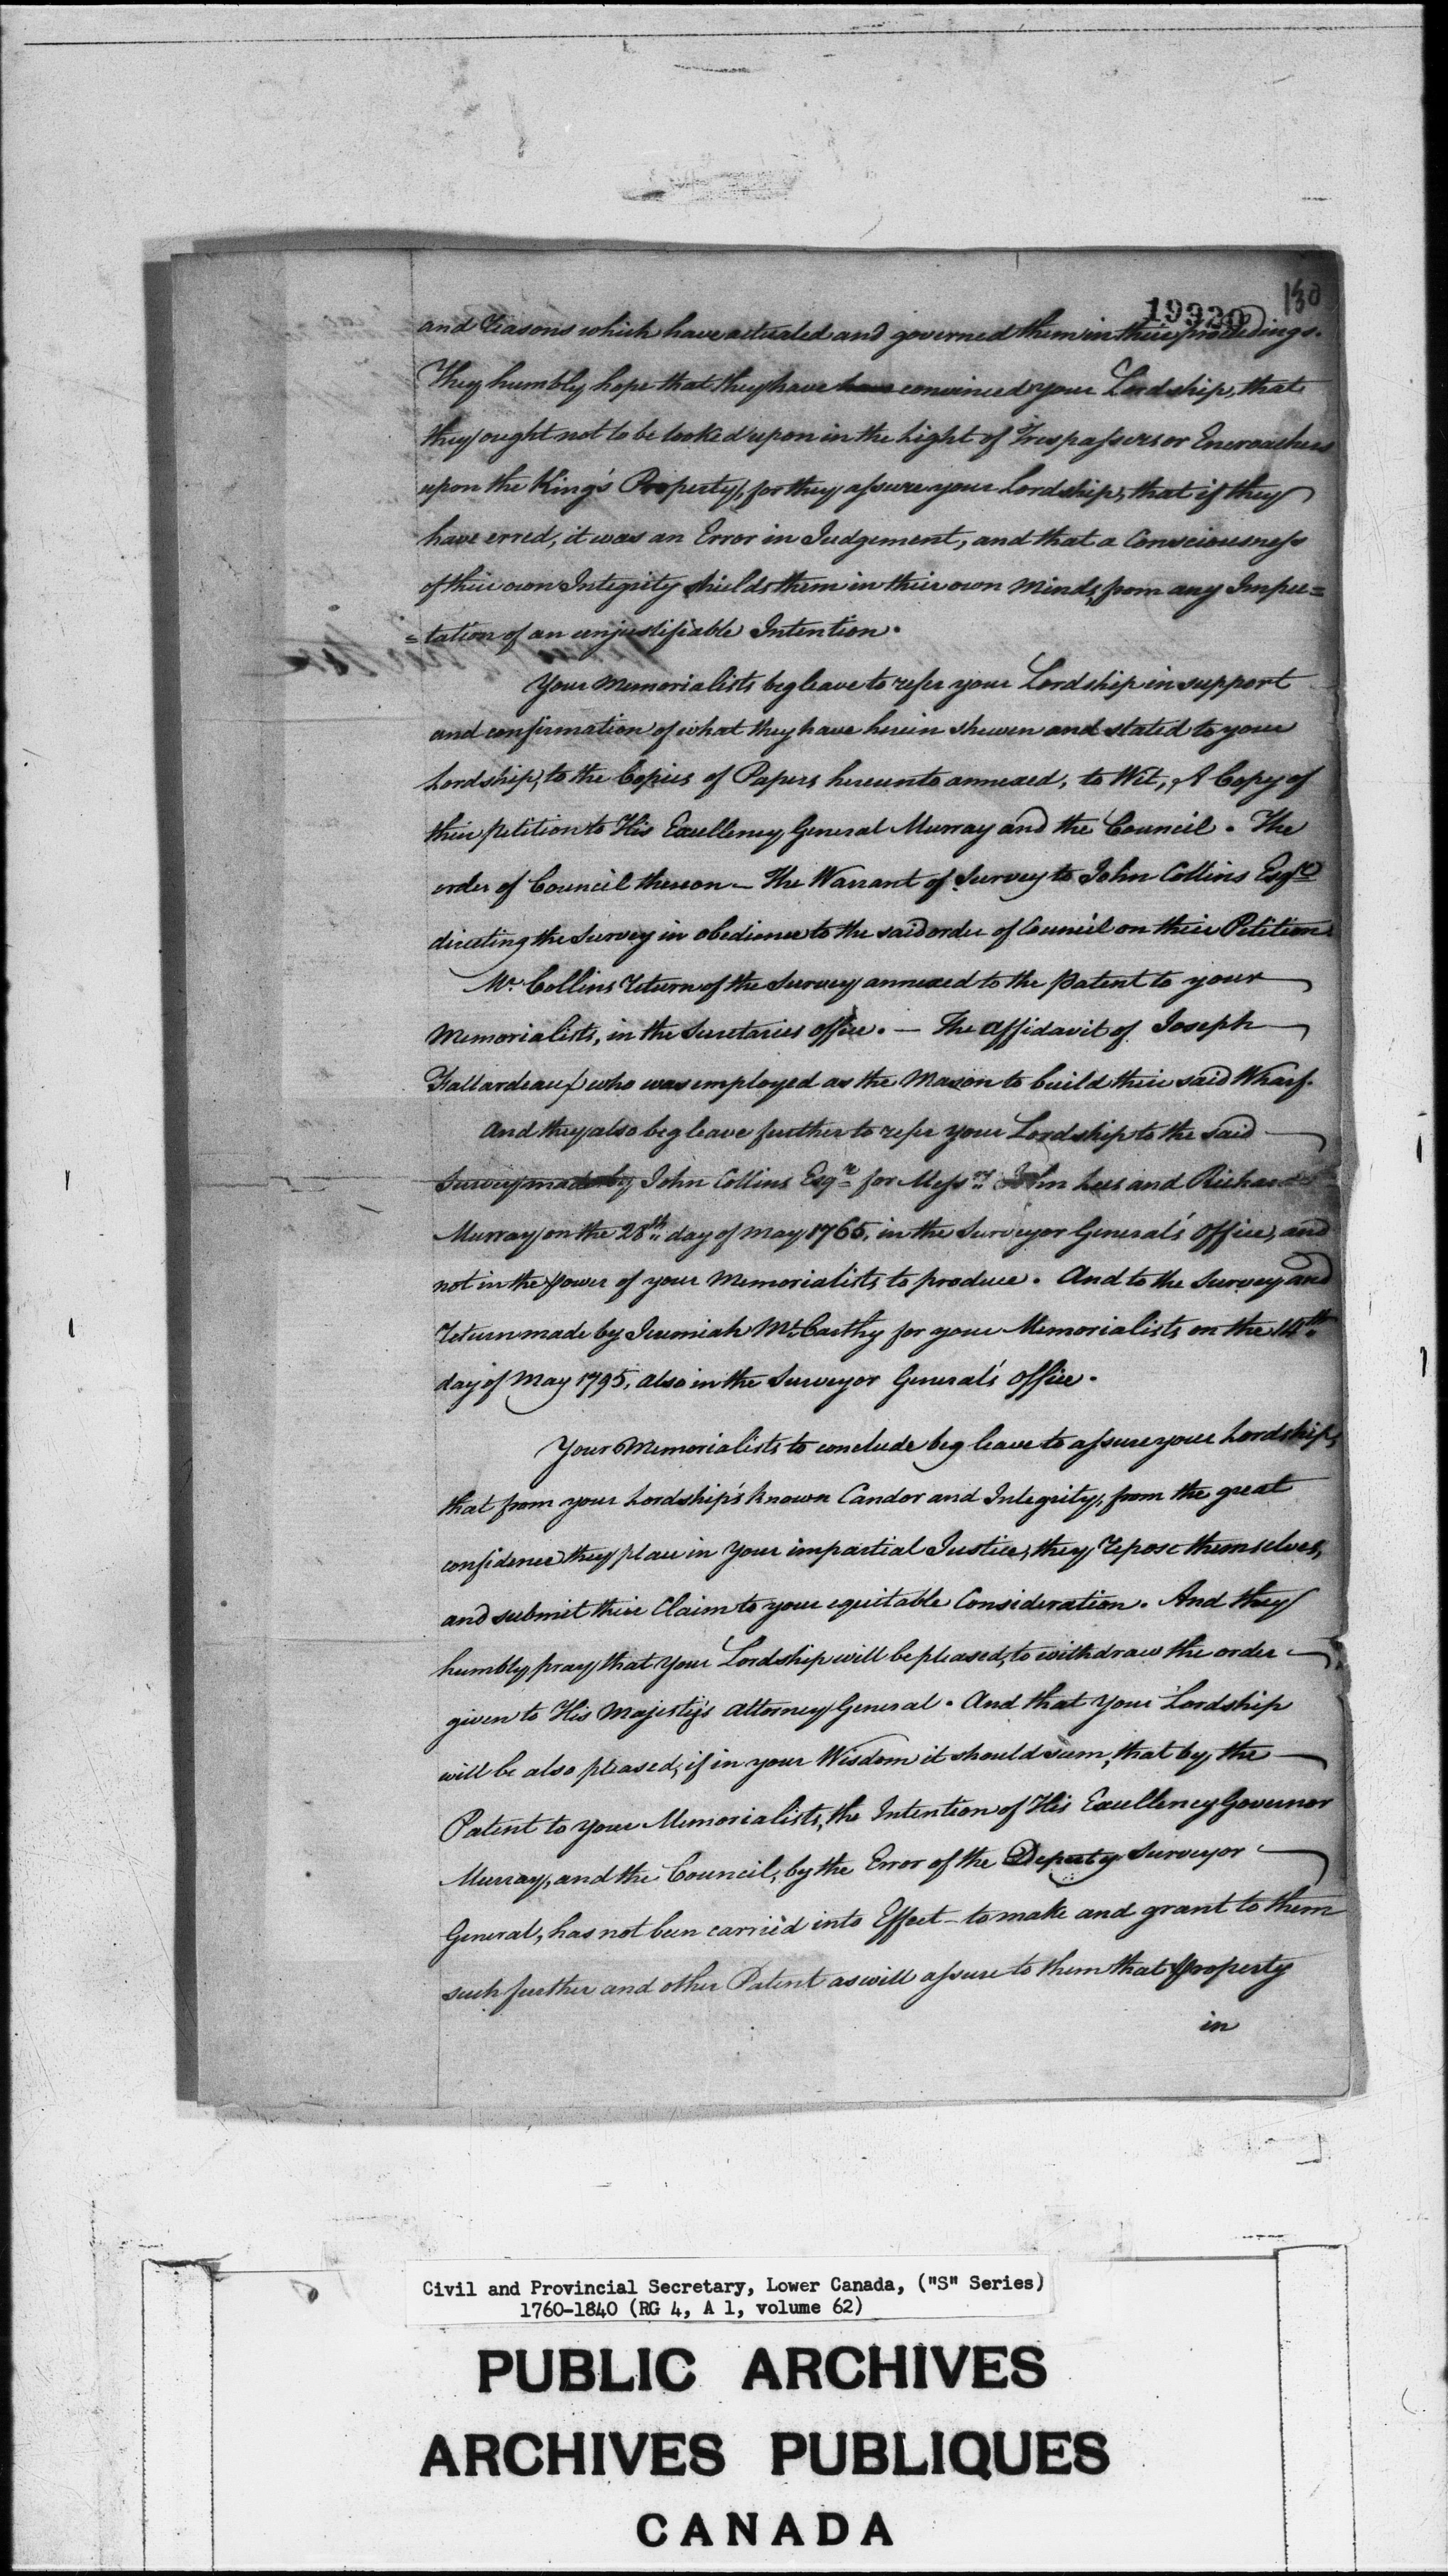 130
19320
and Reasons which have actuated and governed them in their proceedings.
They humbly hope that they have have convinced your Lordship, that
they ought not to be looked upon in the Light of Trespassers or Encroachers
upon the King's Property, for they assure your Lordship, that if they
have erred, it was an Error in Judgement, and that a Consciousness
of their own Integrity shields them in their own Minds, from any Impu=
=tation of an unjustifiable Intention.
Your Memorialists beg leave to refer your Lordship in support
and confirmation of what they have herein shewn and stated to your
Lordship, to the Copies of Papers hereunto annexed, to Wit, A Copy of
their petition to His Excellency General Murray and the Council. The
order of Council thereon — The Warrant of Survey to John Collins Esqr.
directing the Survey in obedience to the said order of Council on their Petition.
Mr. Collins Return of the Survey annexed to the Patent to your
Memorialists, in the Secretaries office. — The Affidavit of Joseph
Fallardeau who was employed as the Mason to build their said Wharf.
And they also beg leave further to refer your Lordship to the said
Survey made by John Collins Esqr. for Messrs. John Lees and Richard
Murray on the 28th day of May 1765, in the Surveyor General's Office, and
not in the power of your Memorialists to produce. And to the Survey and
Return made by Jeremiah McCarthy for your Memorialists on the 14th
day of May 1795, also in the Surveyor General's Office.
Your Memorialists to conclude beg leave to assure your Lordship,
that from your Lordship's known Candor and Integrity, from the great
confidence they place in Your impartial Justice, they repose themselves,
and submit their Claim to your equitable Consideration. And they
humbly pray that your Lordship will be pleased, to withdraw the order
given to His Majesty's Attorney General. And that Your Lordship
will be also pleased, if in your Wisdom it should seem, that by the
Patent to your Memorialists, the Intention of His Excellency Governor
Murray, and the Council, by the Error of the Deputy Surveyor
General, has not been carried into Effect — to make and grant to them
such further and other Patent as will assure to them that Property
in
Civil and Provincial Secretary, Lower Canada, ("S" Series)
1760-1840 (RG 4, A 1, volume 62)
PUBLIC ARCHIVES
ARCHIVES PUBLIQUES
CANADA